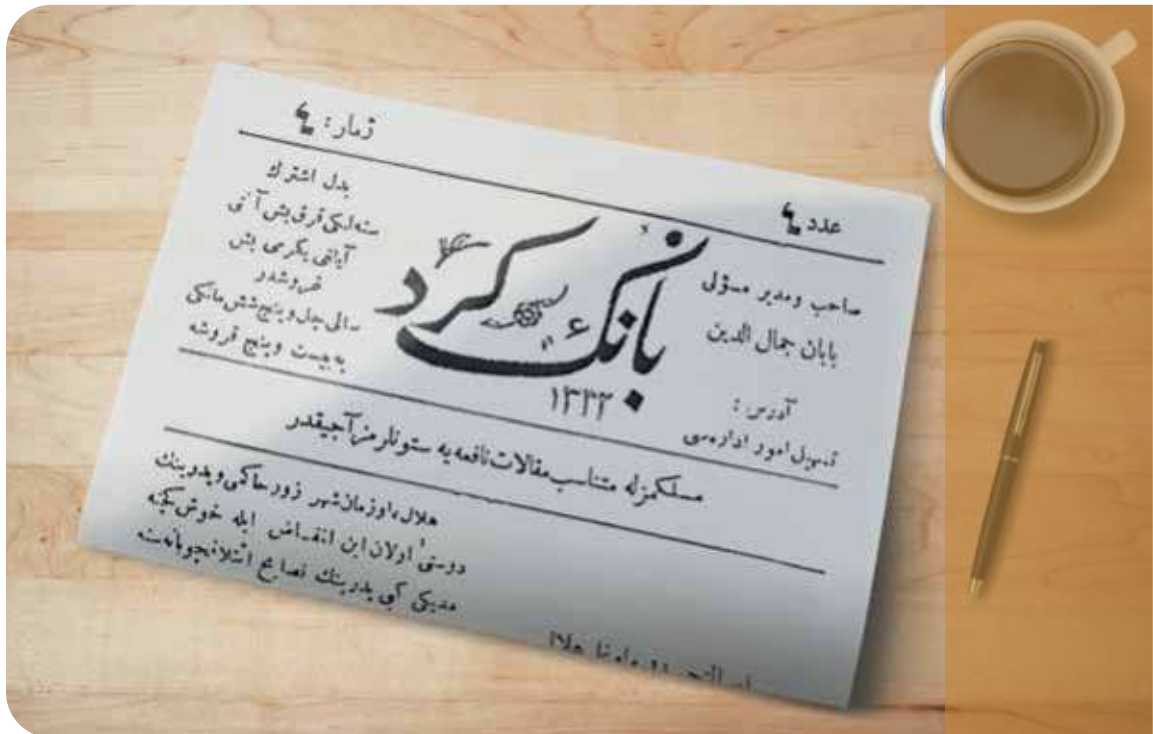 ژمار: ٤
عدد ٤
بدل اشتراك
سنه‌لكی قرق بش آلتی
آیلغی یگرمی بش
غروشدر
سالی چل و پنج شش مانگی
به بیست و پنج قروشه
بانگ كرد
١٣٣٢
صاحب و مدیر مسؤلی
بابان جمال الدین
آدرس :
امور اداره‌سی
مسلكمزله متناسب مقالات نافعه‌یه ستونلرمز آچیقدر
هلال، اوزمان شهر زور حاكمی و پدرینك
دوستی اولان ابن انقـاض ایله خوش
پدرینك نصایح